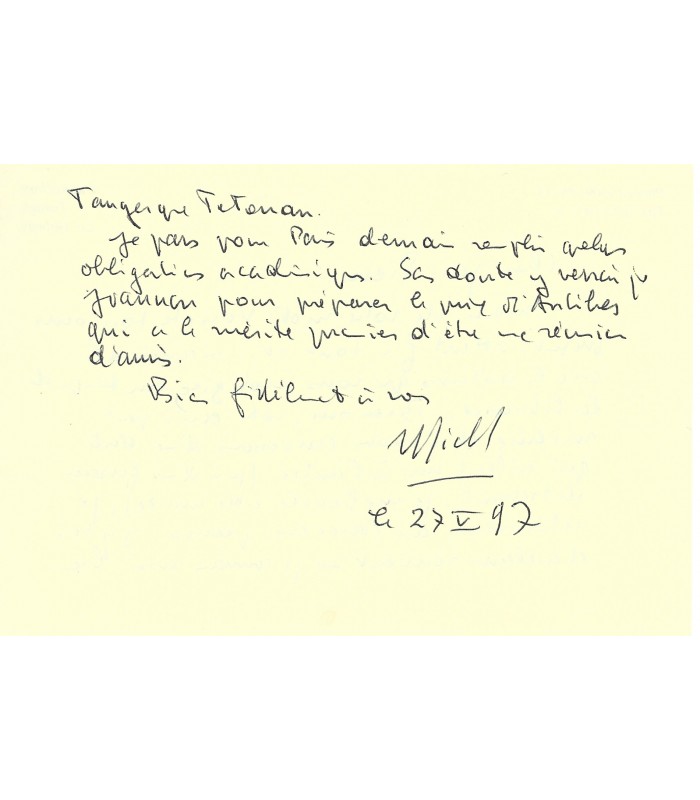 Tanger que Tetouan.
Je pars pour Paris demain remplir quelques
obligations académiques. Sans doute y verrai je
Joannon pour préparer le prix d'Antibes
qui a le mérite premier d'être une réunion
d'amis.
Bien fidèlement à vous
Michel
le 27 V 97